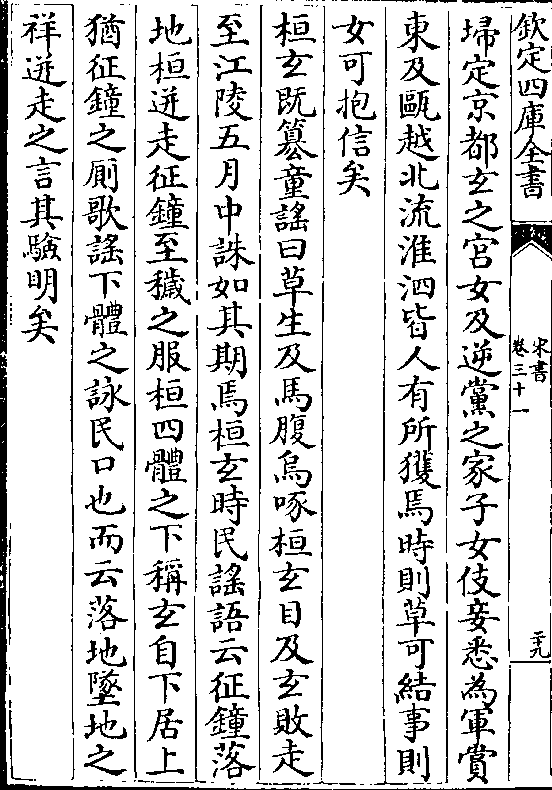 欽定四庫全書
宋書
卷三十一
二十九
埽定京都玄之宮女及逆黨之家子女伎妾悉為軍賞
東及甌越北流淮泗皆人有所獲焉時則草可結事則
女可抱信矣
桓玄既篡童謠曰草生及馬腹烏啄桓玄目及玄敗走
至江陵五月中誅如其期焉桓玄時民謠語云征鐘落
地桓迸走征鐘至穢之服桓四體之下稱玄自下居上
猶征鐘之厠歌謠下體之詠民口也而云落地墜地之
祥迸走之言其驗明矣